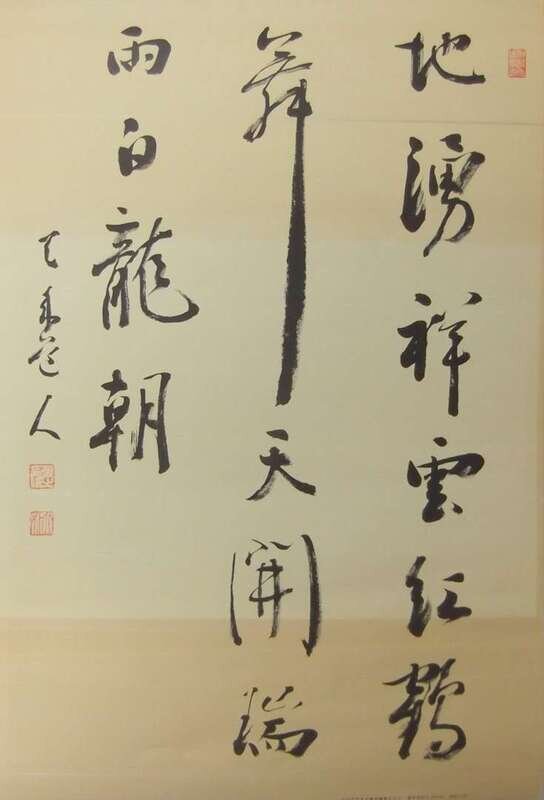 地湧祥雲紅鶴
舞天開瑞
雨白龍朝
人